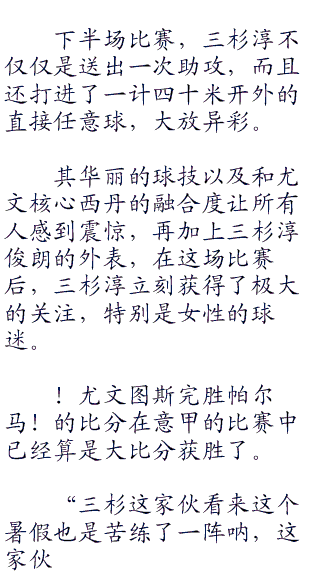 下半场比赛，三杉淳不
仅仅是送出一次助攻，而且
还打进了一计四十米开外的
直接任意球，大放异彩。
其华丽的球技以及和尤
文核心西丹的融合度让所有
人感到震惊，再加上三杉淳
俊朗的外表，在这场比赛
后，三杉淳立刻获得了极大
的关注，特别是女性的球
迷。
！尤文图斯完胜帕尔
马！的比分在意甲的比赛中
已经算是大比分获胜了。
“三杉这家伙看来这个
暑假也是苦练了一阵呐，这
家伙